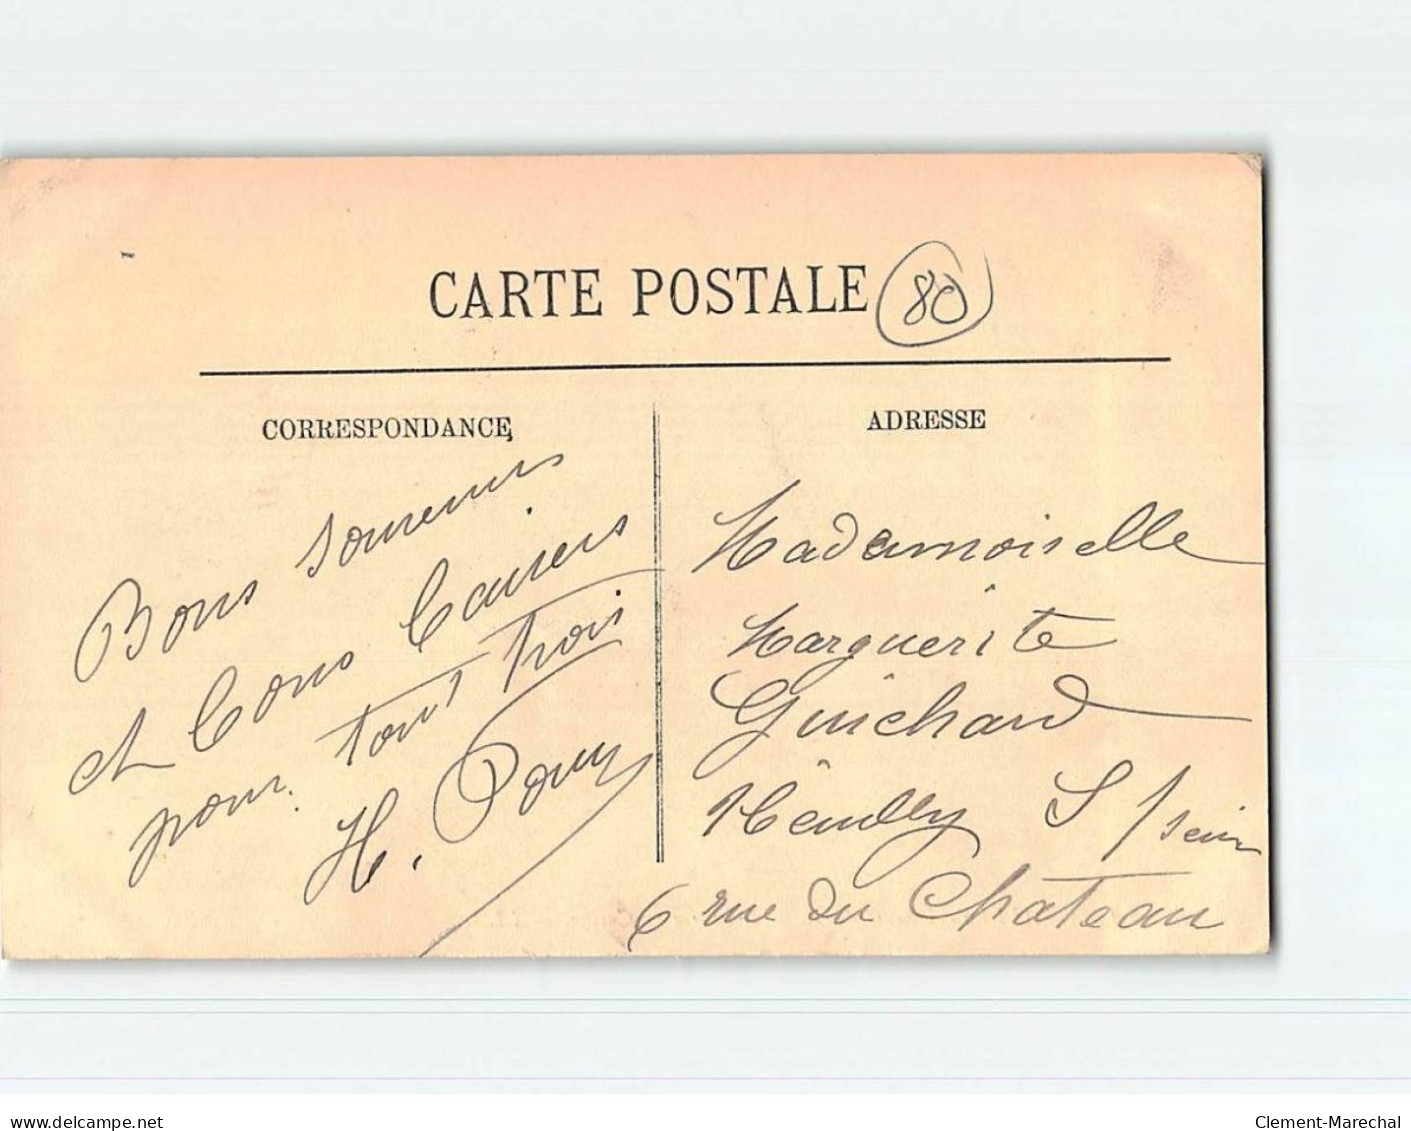 CARTE POSTALE 80
CORRESPONDANCE
Bons souvenirs
et bons baisers
pour tout trois
H. Pouy
ADRESSE
Mademoiselle
Marguerite
Guichard
Neuilly S/seine
6 rue du Chateau
www.delcampe.net
Clement-Marechal